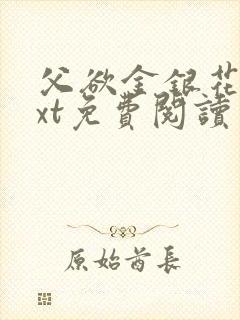 父欲金銀花
xt免費閱讀
原始酋長